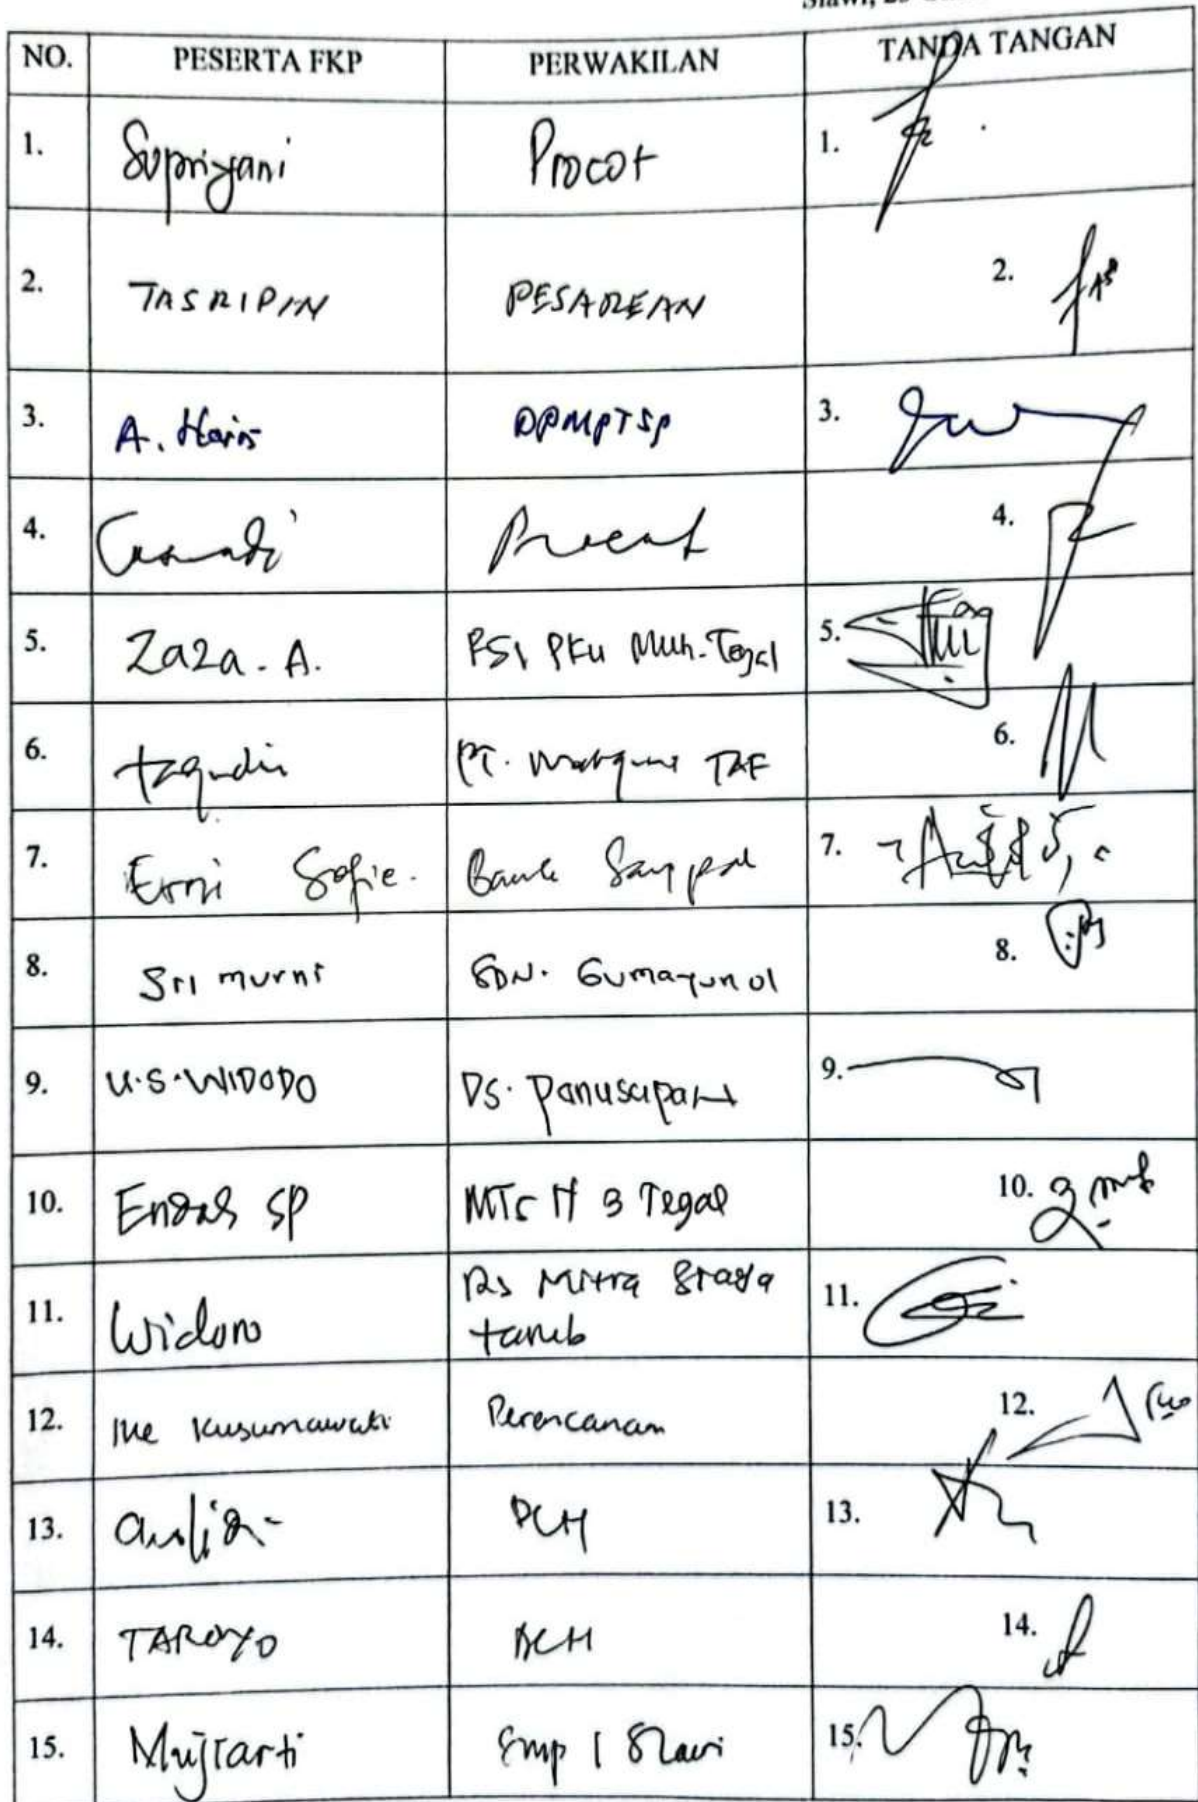 NO. PESERTA FKP PERWAKILAN TANDA TANGAN
1. Supriyani Procot 1.
2. TASRIPIN PESAREAN 2.
3. A. Haris DPMPTSP 3.
4. Procot 4.
5. Zaza. A. RSI PKU Muh. Tegal 5.
6. PT. 6.
7. Erni Sofie. 7.
8. Sri murni SDN. Gumayun 01 8.
9. U.S. WIDODO DS. 9.
10. Endah SP MTs N 3 Tegal 10.
11. Rs Mitra Siaga
Widoro 11.
12. Ike Kusumawati Perencanaan 12.
13. Aulia 13.
14. TAROYO 14.
15. Mujiarti Smp 1 Slawi 15.